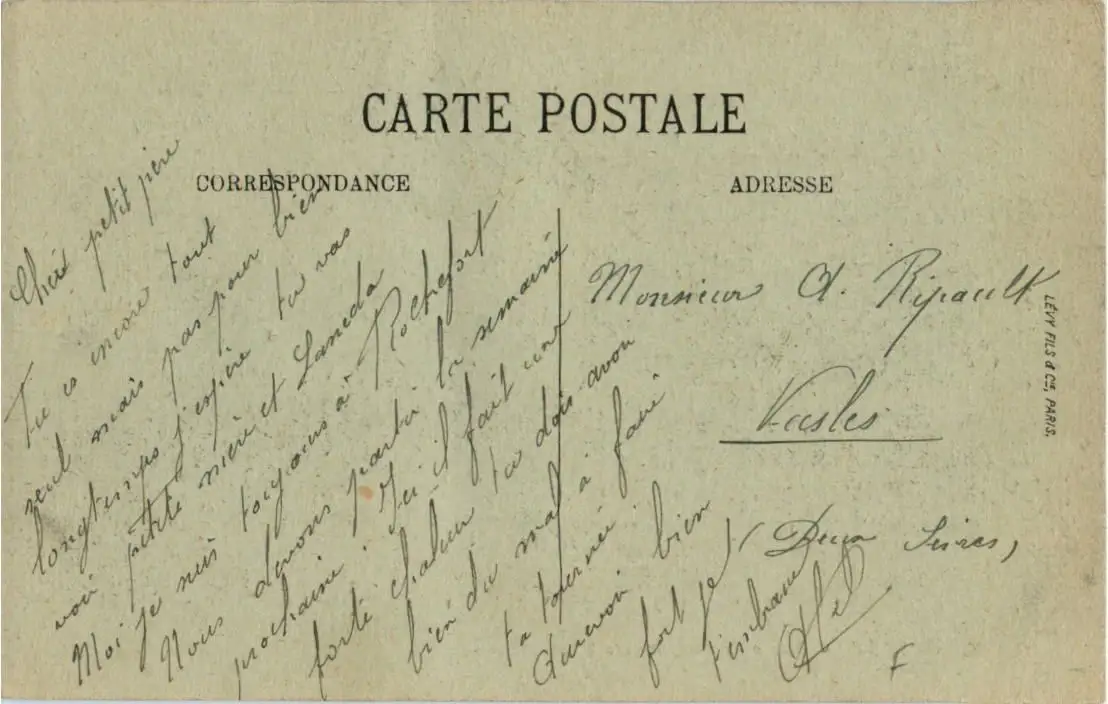 CARTE POSTALE
CORRESPONDANCE
ADRESSE
Cheri petit père
Tu es encore tout
seul mais pas pour bien
longtemps j'espère tu vas
voir petite mère et
Moi je suis toujours à Rochefort
Nous devons partir la semaine
prochaine Ici il fait une
forte chaleur tu dois avoir
bien du mal à faire
ta tournée
Aurevoir bien
fort je
t'embrasse
Monsieur A. Ripault
Vasles
(Deux Sèvres)
F
LÉVY FILS & Cie, PARIS.